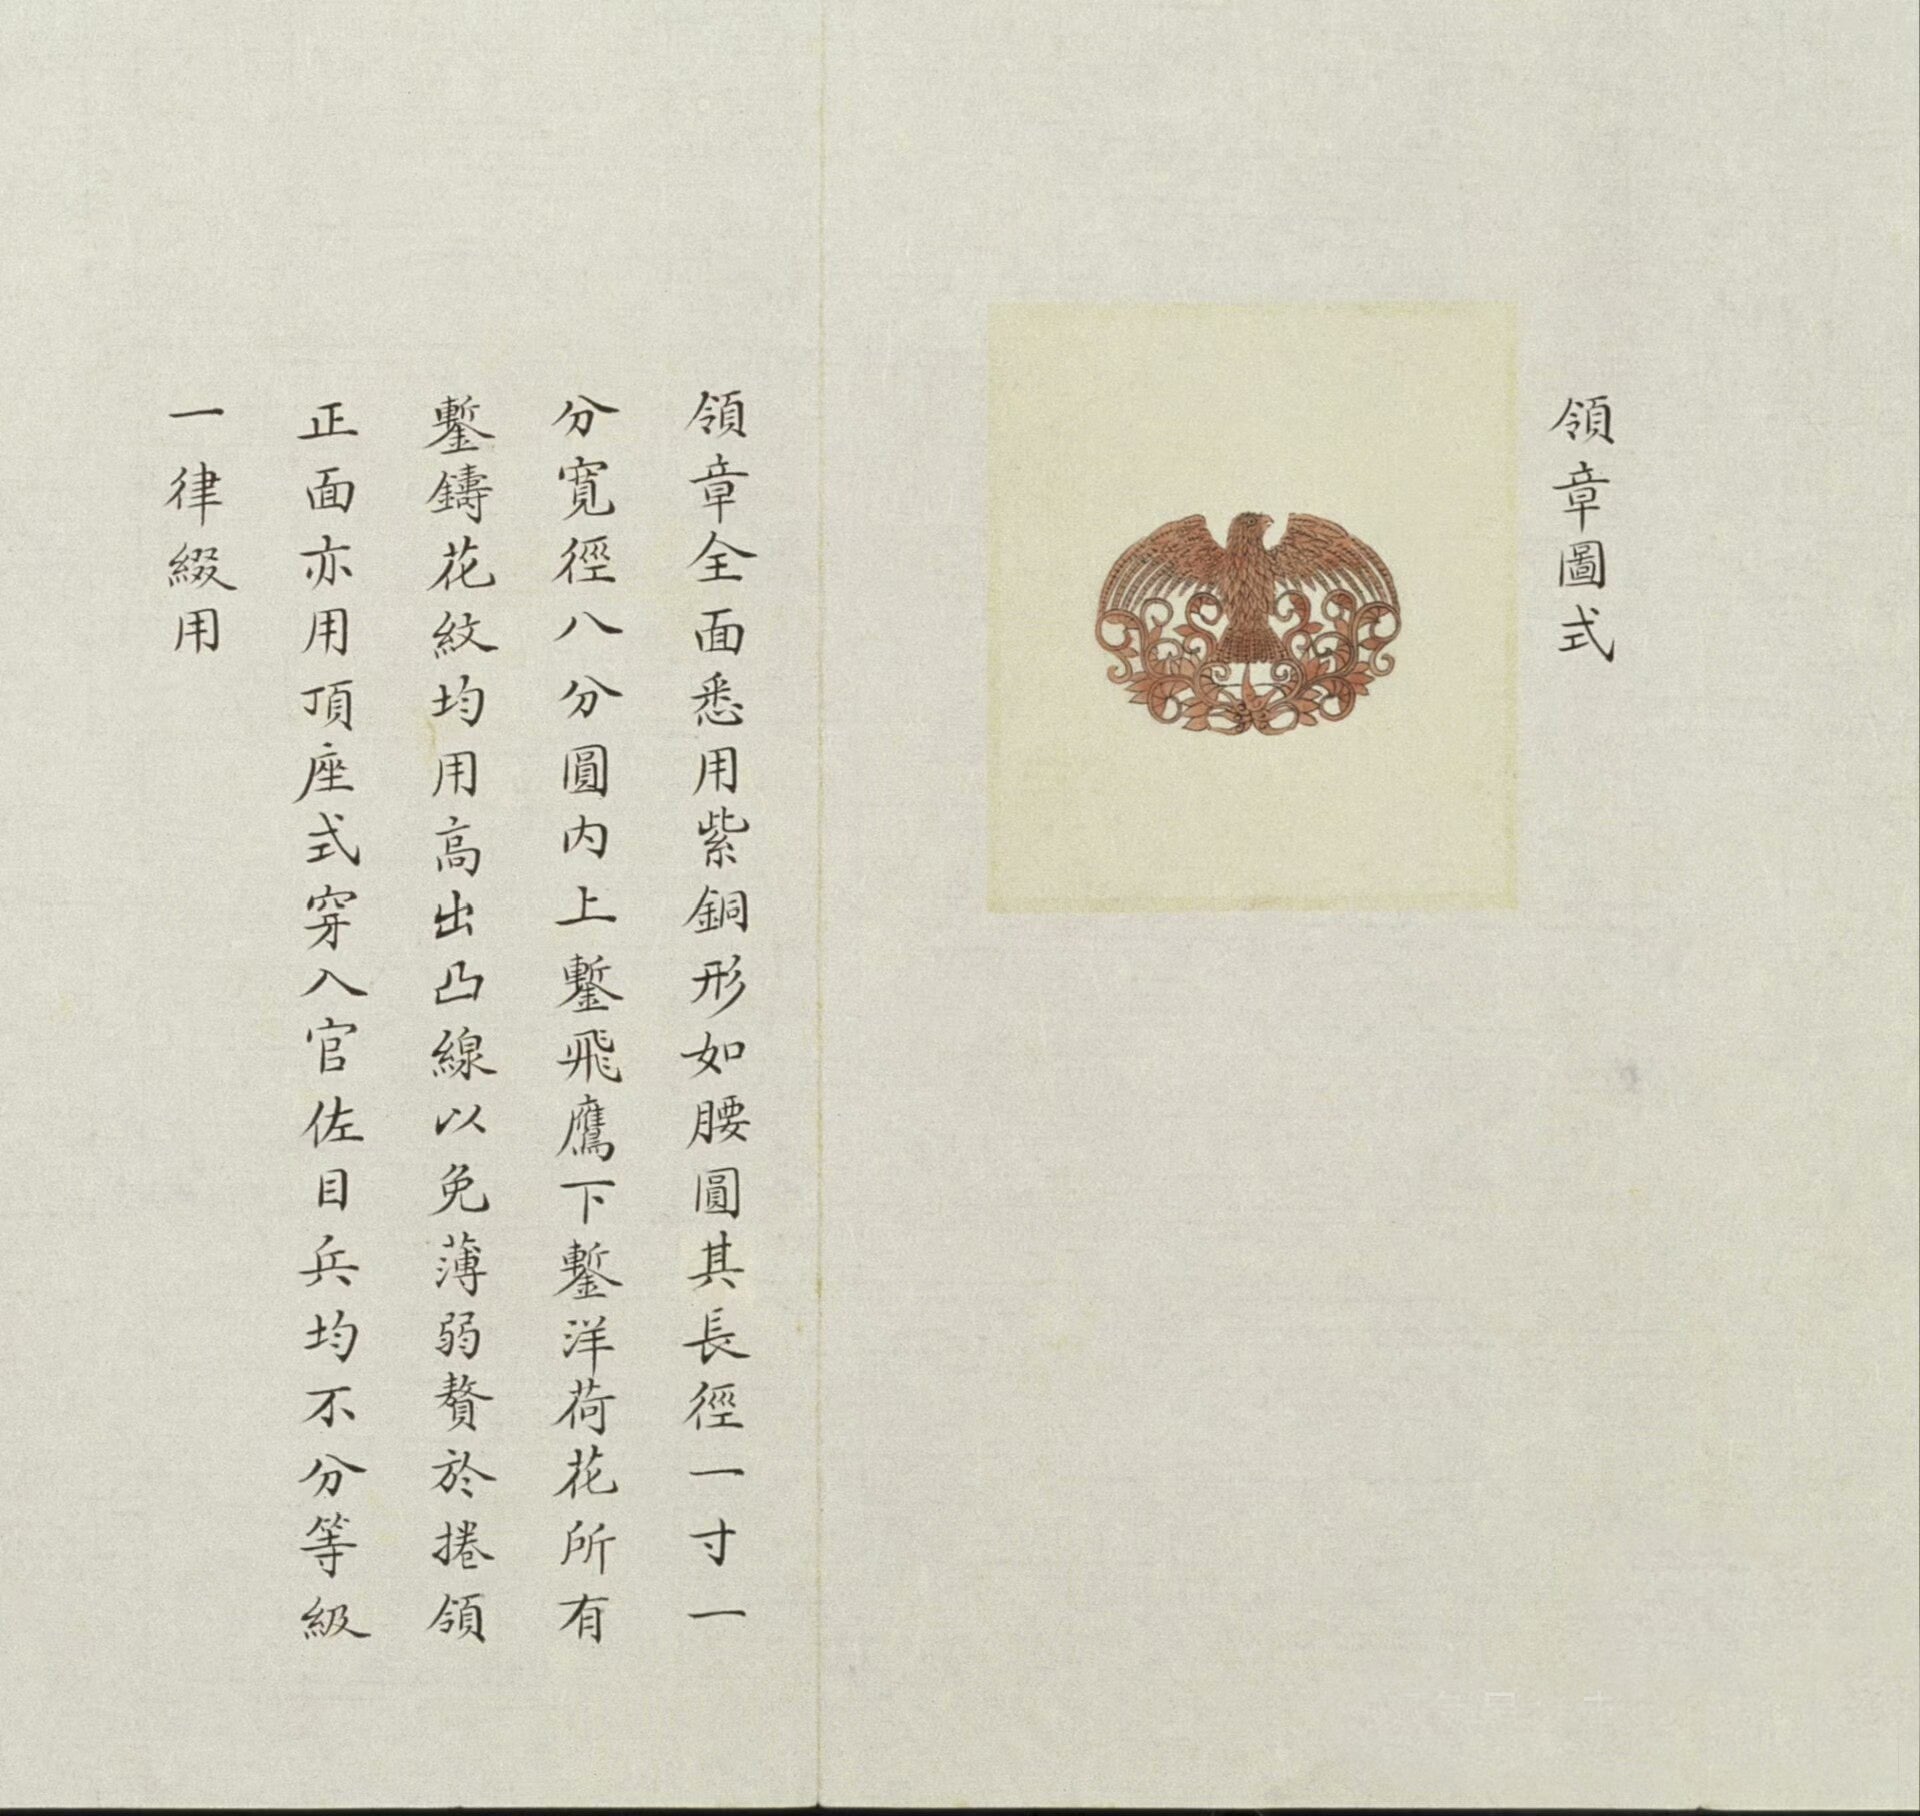 領章圖式
領章全面悉用紫銅形如腰圓其長徑一寸一
分寬徑八分圓内上鏨飛鷹下鏨洋荷花所有
鏨鑄花紋均用高出凸線以免薄弱贅於捲領
正面亦用頂座式穿入官佐目兵均不分等級
一律綴用